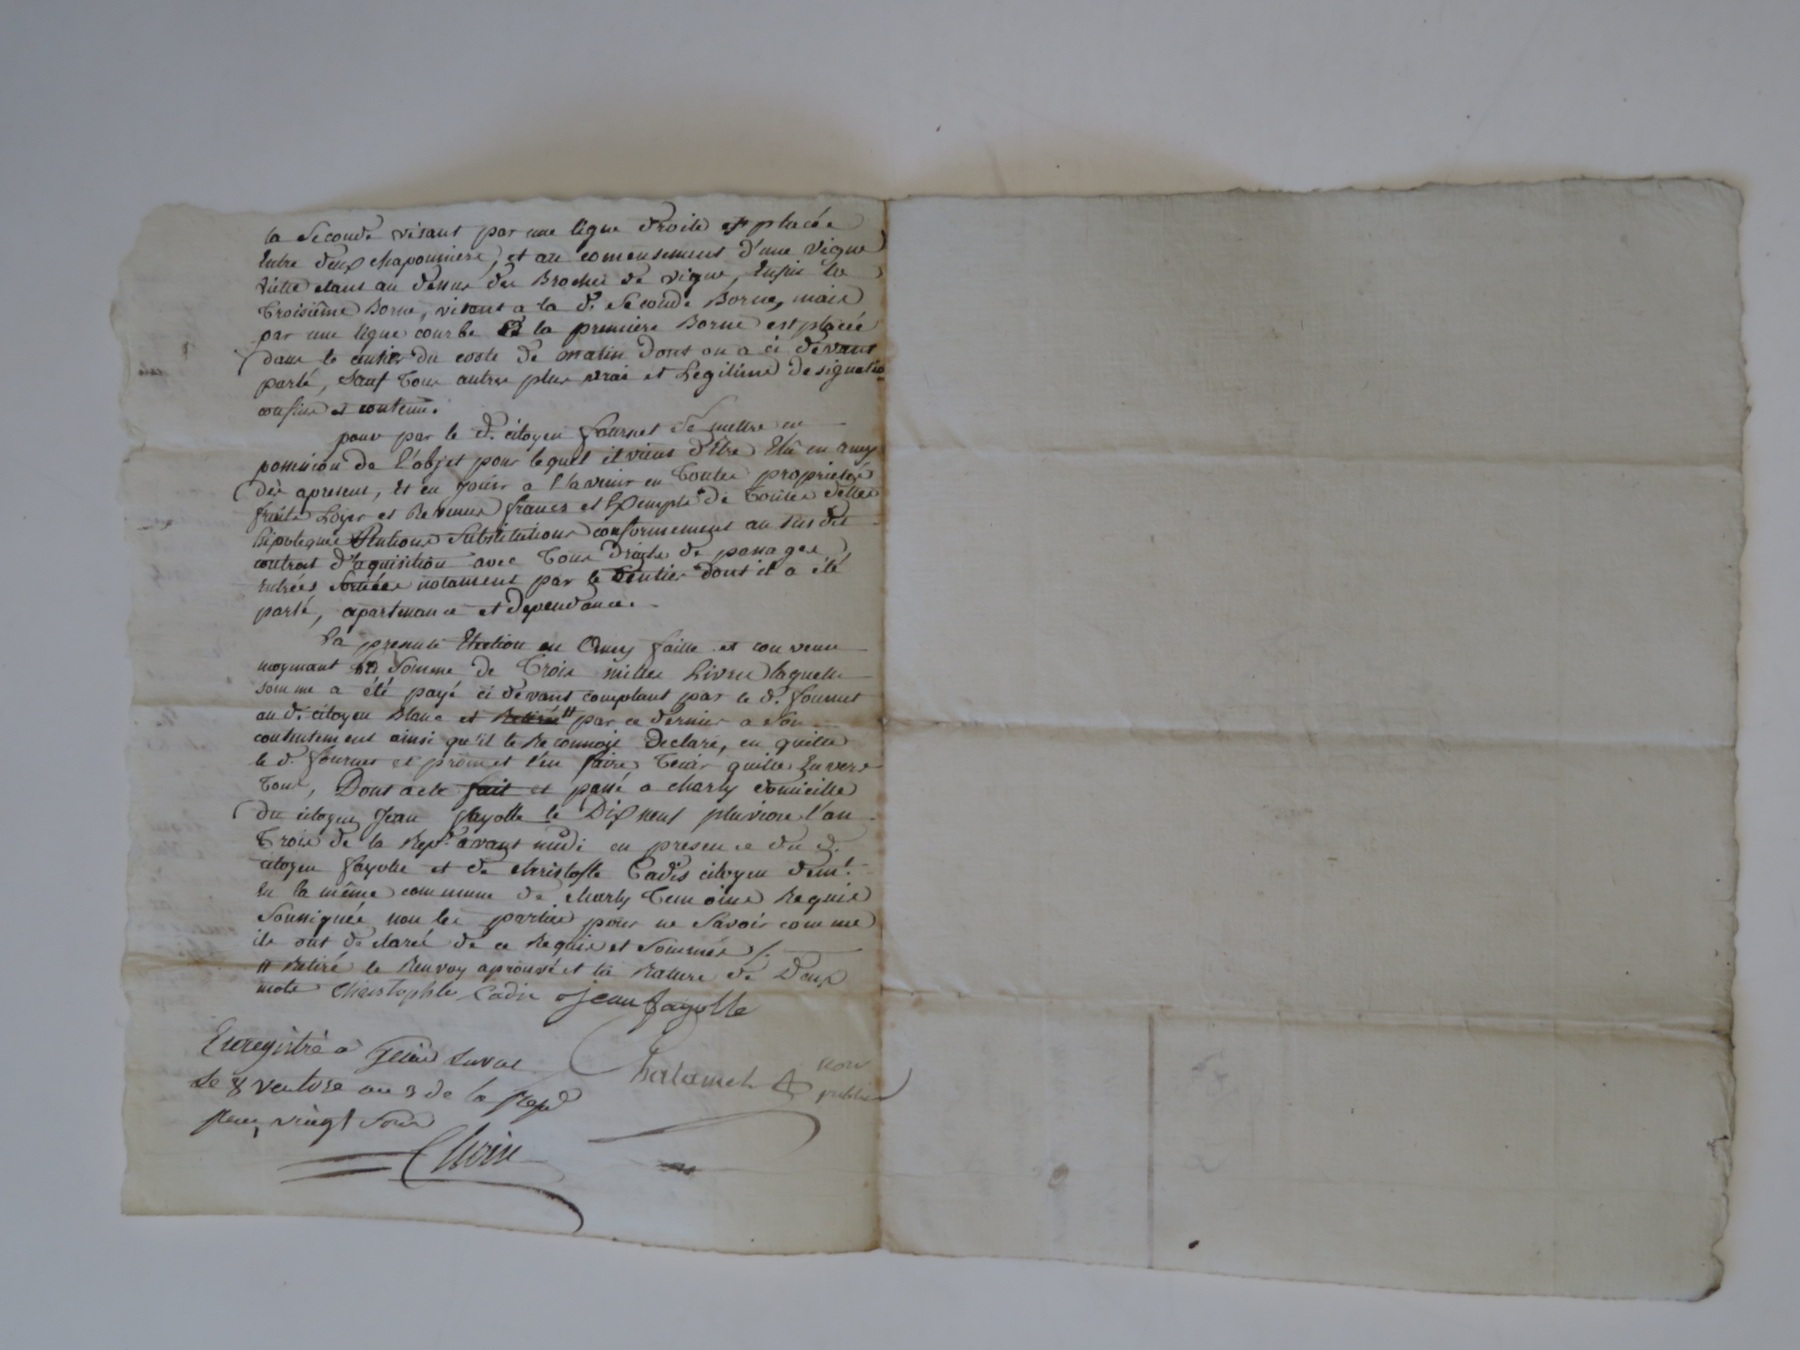 la Seconde visant par une ligne droite est placée
Entre deux chaponniere, et au comensement d'une vigne
vieille etant au dessus des Broches de vigne, Enfin la
Troisième Borne, visant a la d. Seconde Borne, mais
par une ligne courbe et la première Borne est placée
dans le sentier du costé de matin dont on a ci devant
parlé, Sauf tous autres plus vrais et Legitime designation
confins et contenu.
pour par le d. citoyen fournet Se mettre en
possession de L'objet pour lequel il vient d'Etre Elû en amy
dès apresent, Et en Jouir a l'avenir en Toutes proprietés
fruits Loyer et Revenus francs et Exempts de Toutes dettes
hipoteques Substitutions conformement au Susdit
contrat d'aquisition avec Tous droits de passages
entrées Sorties notament par le Sentier dont il a été
parlé, apartenance et dependance.
La presente Election en Amy faitte et convenue
moyenant la Somme de Trois milles Livres laquelle
somme a été payé ci devant comptant par le d. fournet
au d. citoyen Blanc et Retirée # par ce dernier a Son
contentement ainsi qu'il le Reconnoit Declare, en quitte
le d. fournet et promet l'en faire Tenir quitte Envers
Tous, Dont acte fait et passé a charly domicille
du citoyen Jean fayolle le Dix neuf pluviose l'an
Trois de la Rep.e avant midi en presence du d.
citoyen fayolle et de christofle Cadis citoyen dem.t
en la même commune de charly Temoins Requis
Soussignés non les parties pour ne Savoir comme
ils ont declaré de ce Requis et Sommés /.
# Retiré le Renvoy aprouvé et la Rature de Deux
mots Christophle Cadis Jean fayolle
Enregistré a Genis Laval Chalamel nore
Le 8 ventose an 3 de la Rep public
Reçu vingt Sous